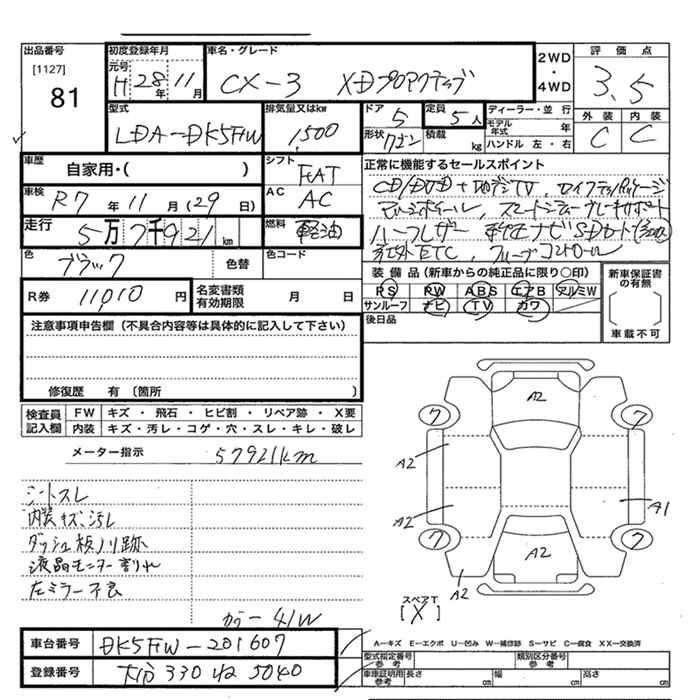 出品番号
[1127]
81
初度登録年月
元号
H 28年 11月
車名・グレード
CX-3 XDプロアクティブ
2WD
・
4WD
評価点
3.5
外装 内装
C C
型式
LDA-DK5FW
排気量又はkw
1,500
ドア 5
形状 ワゴン
定員 5人
積載 kg
ディーラー・並行
モデル年式 年
ハンドル 左・右
車歴
自家用・( )
シフト
FAT
車検
R7年11月(29日)
AC
AC
走行
5万7千921km
燃料
軽油
色
ブラック
色替
色コード
R券 11,010円
名変書類有効期限 月 日
正常に機能するセールスポイント
CD/DVD+地デジTV、
スマートシティブレーキサポート
ハーフレザー 純正ナビSDカード
社外ETC、クルーズコントロール
装備品(新車からの純正品に限り○印)
PS PW ABS エアB アルミW
サンルーフ ナビ TV カワ
後日品
新車保証書の有無
車載不可
注意事項申告欄(不具合内容等は具体的に記入して下さい)
修復歴 有(箇所 )
検査員記入欄
FW キズ・飛石・ヒビ割・リペア跡・X要
内装 キズ・汚レ・コゲ・穴・スレ・キレ・破レ
メーター指示 57921km
シートスレ
内装キズ、汚レ
ダッシュ板ノリ跡
液晶モニター割れ
左ミラー不良
カラー41W
A2
7 7
A2
A2 A1
7 7
A2
A2
スペアT
[X]
A-キズ E-エクボ U-凹み W-補修跡 S-サビ C-腐食 XX-交換済
車台番号 DK5FW-201607
登録番号 330 ね 5040
型式指定番号 参考
類別区分番号 参考
車庫証明用参考 長さ cm 幅 cm 高さ cm